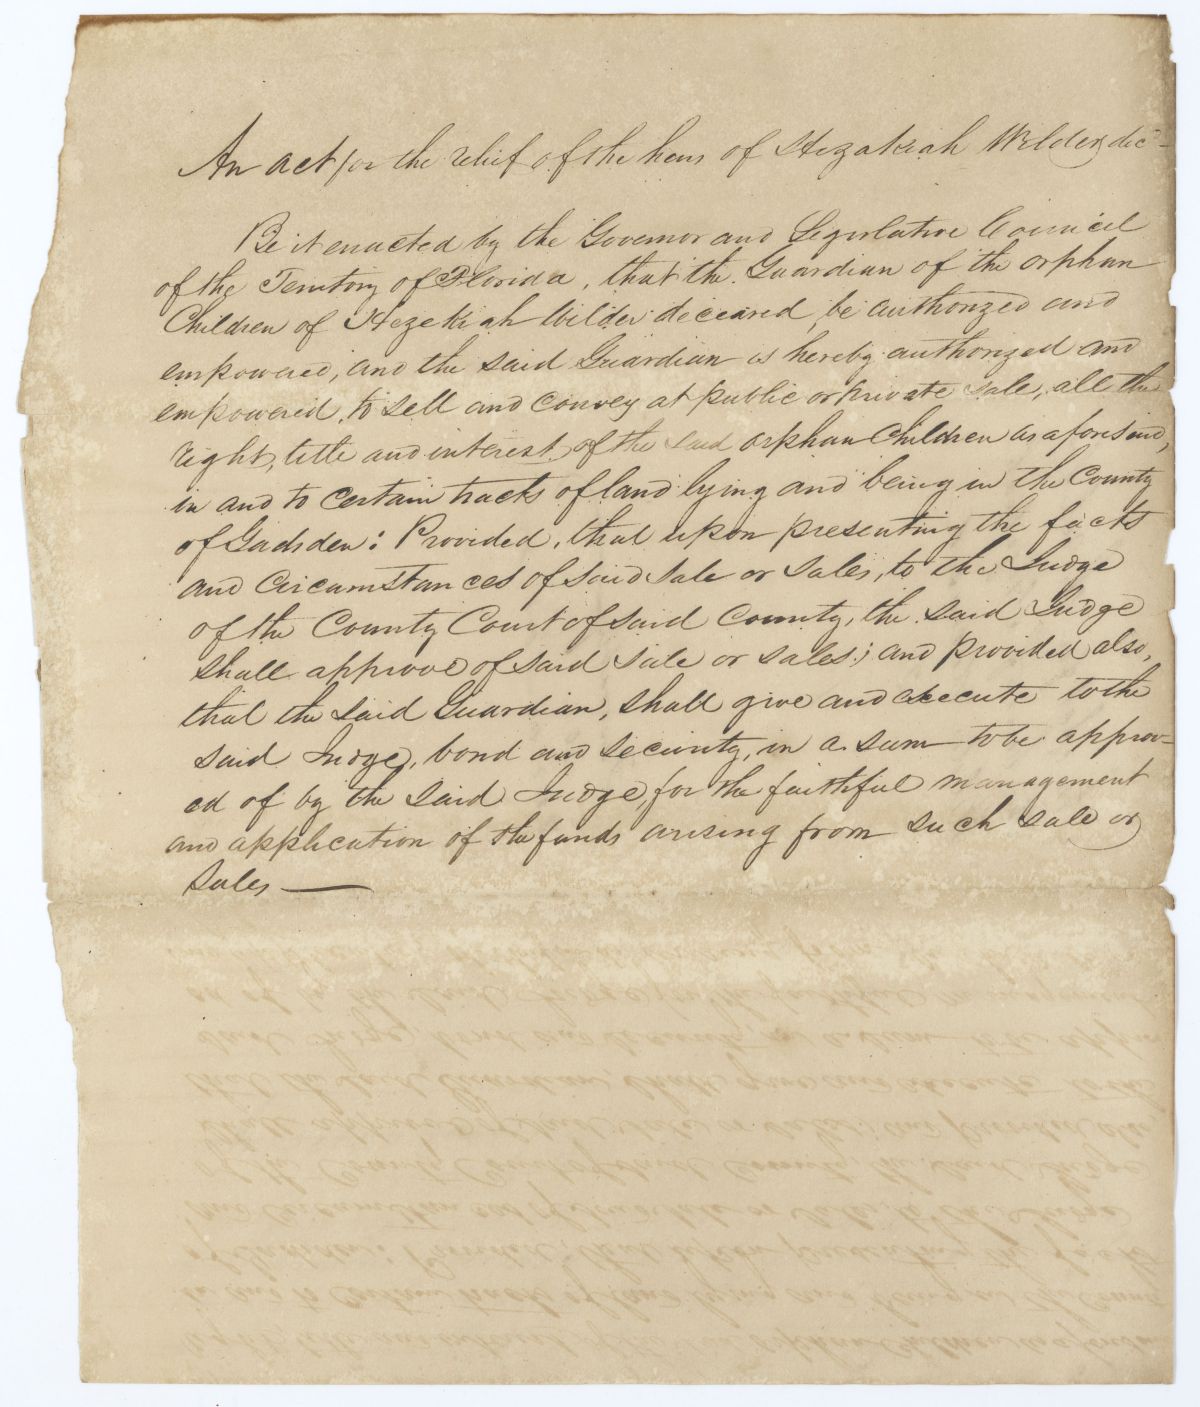 An act for the relief of the heirs of Hezakiah Wilder, dec-
Be it enacted by the Governor and Legislative Council
of the Territory of Florida, that the Guardian of the orphan
Children of Hezekiah Wilder deceased, be authorized and
empowered, and the said Guardian is hereby authorized and
empowered, to sell and convey at public or private sale, all the
right, title and interest of the said orphan Children as aforesaid,
in and to certain tracts of land lying and being in the County
of Gadsden: Provided, that upon presenting the facts
and circumstances of said sale or sales, to the Judge
of the County Court of said County, the said Judge
shall approve of said sale or sales; and provided also,
that the said Guardian, shall give and execute to the
said Judge, bond and security, in a sum to be approv-
ed of by the said Judge, for the faithful management
and application of the funds arising from such sale or
sales —